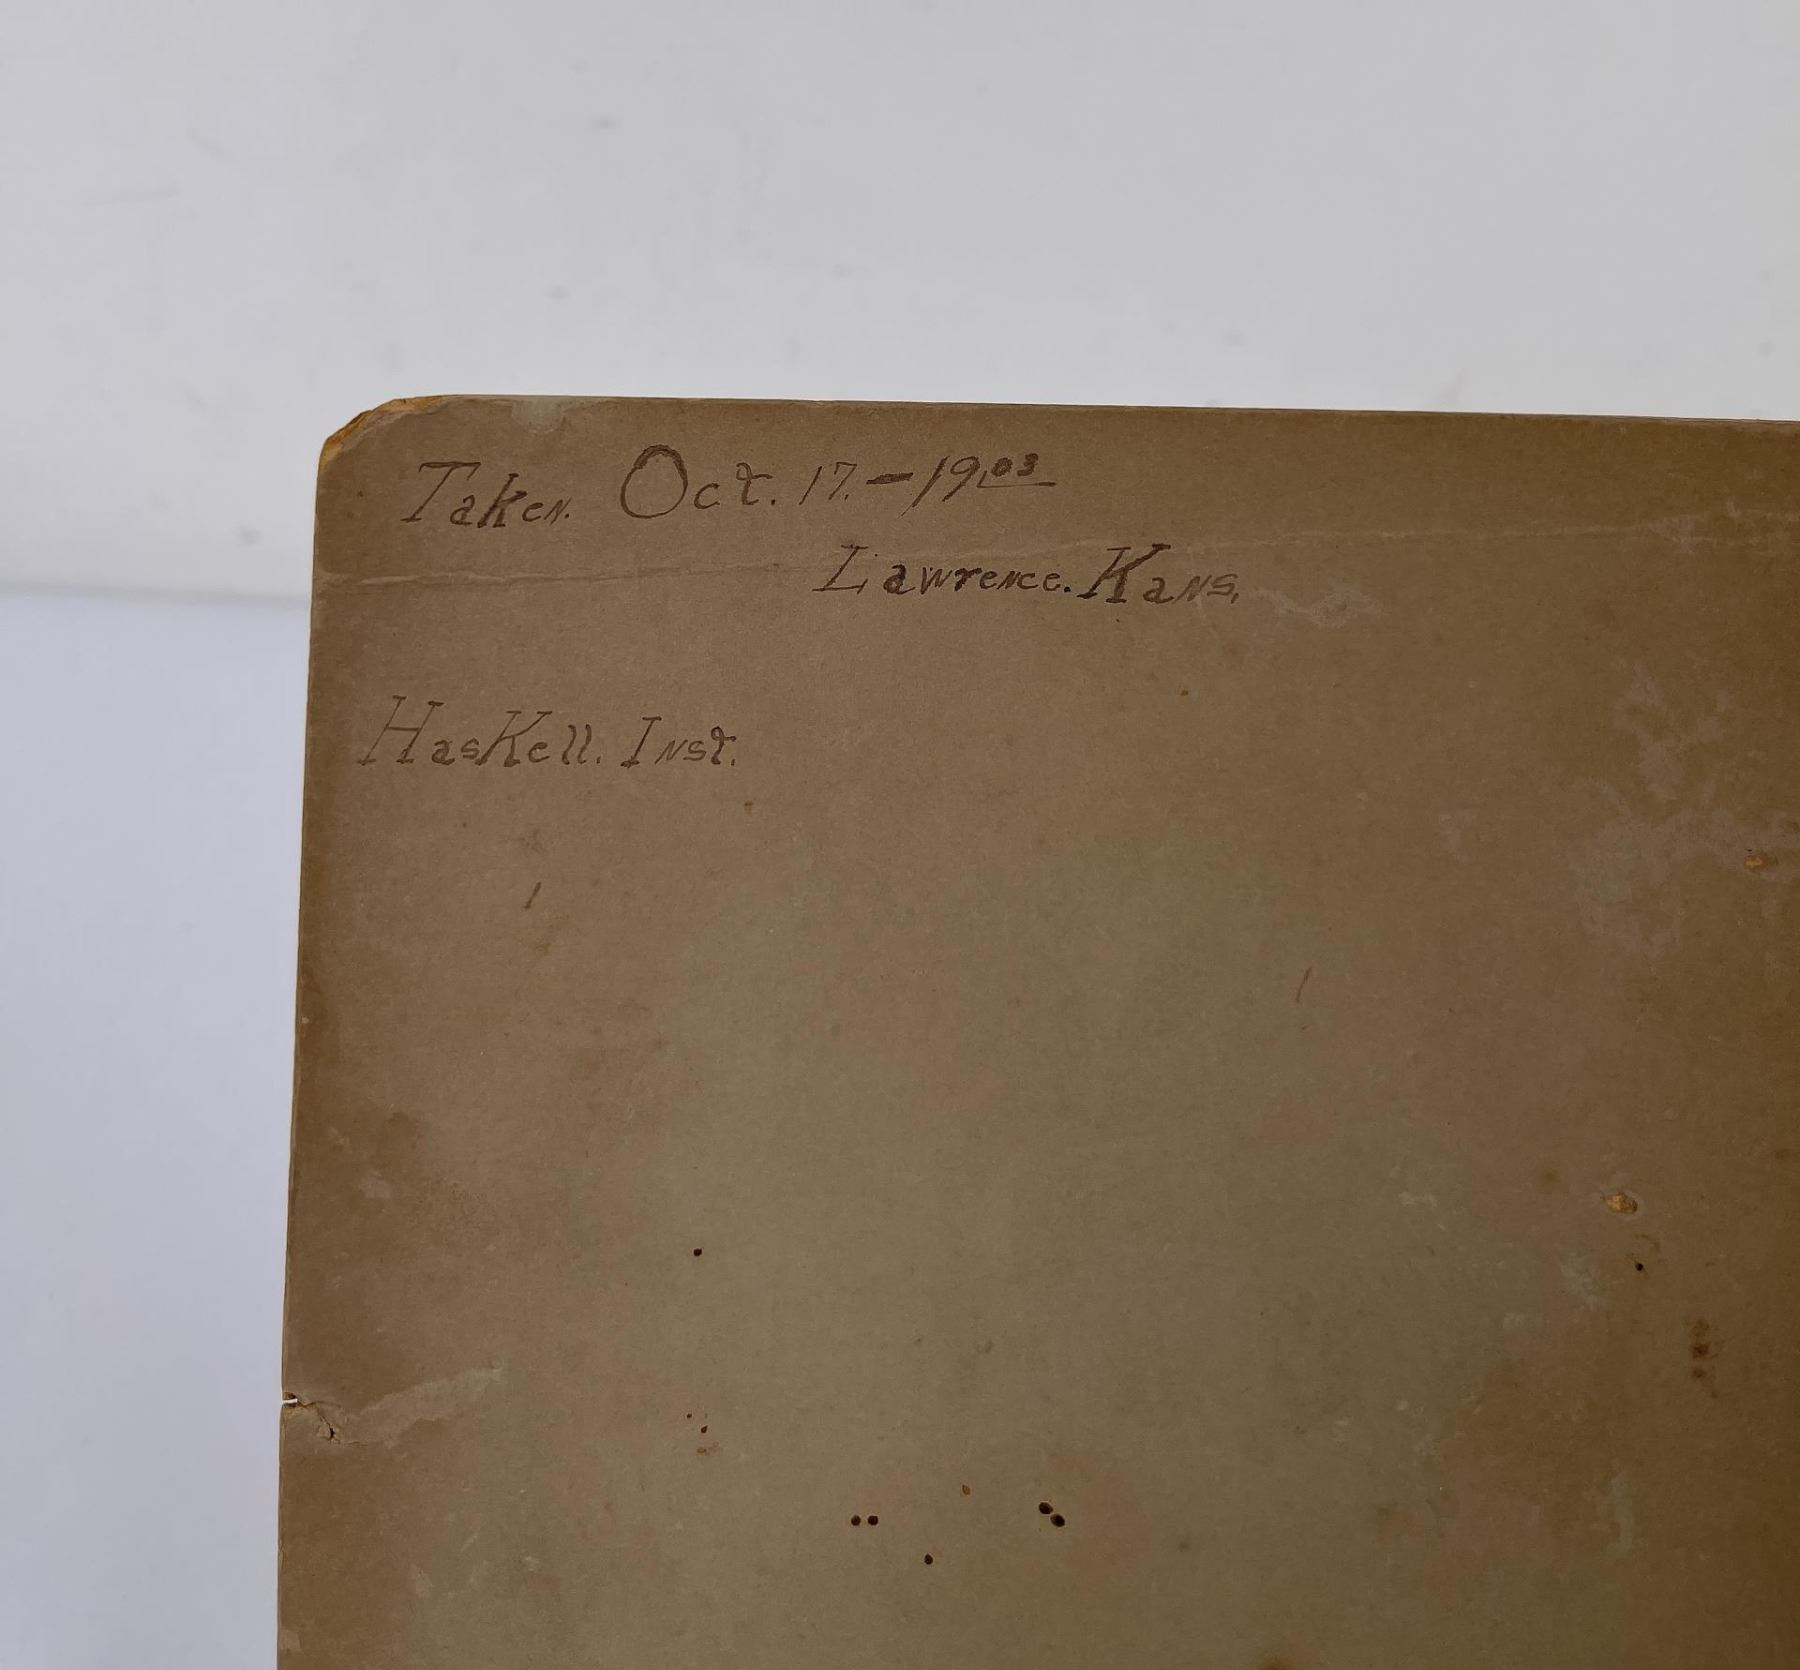 Taken. Oct. 17. - 1903
Lawrence. Kans.
Haskell. Inst.